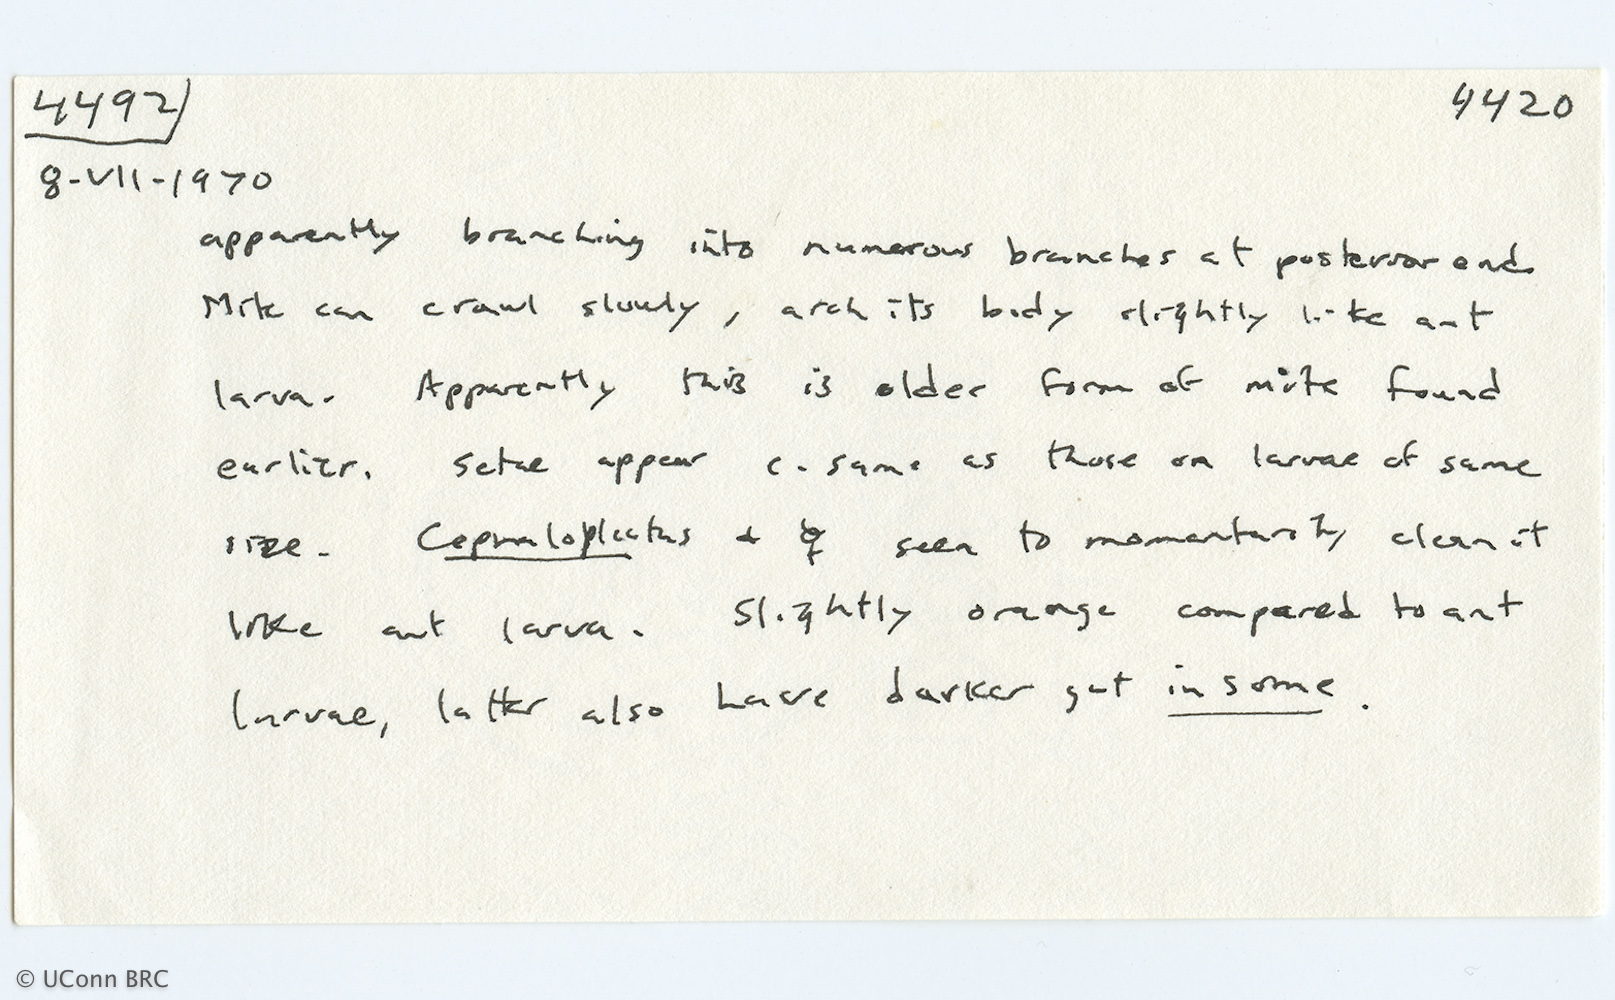 4492 4420
8-VII-1970
apparently branching into numerous branches at posterior end.
Mite can crawl slowly, arch its body slightly like ant
larva. Apparently this is older form of mite found
earlier. Setae appear c. same as those on larvae of same
size. Cephaloplectus + ☿ seen to momentarily clean it
like ant larva. Slightly orange compared to ant
larvae, latter also have darker gut in some.
© UConn BRC